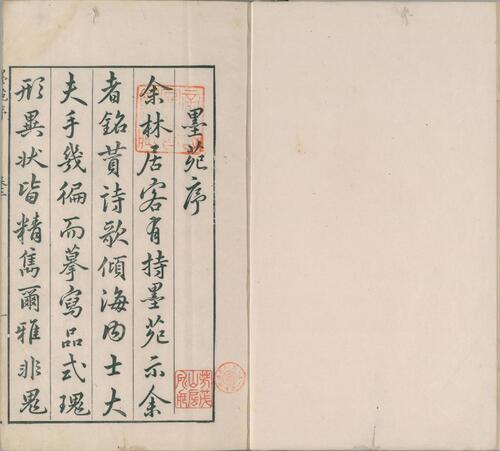 墨苑序
余林居客有持墨苑示余
者銘賛詩歌傾海内士大
夫手幾徧而摹寫品式瑰
形異状皆精雋爾雅非晁